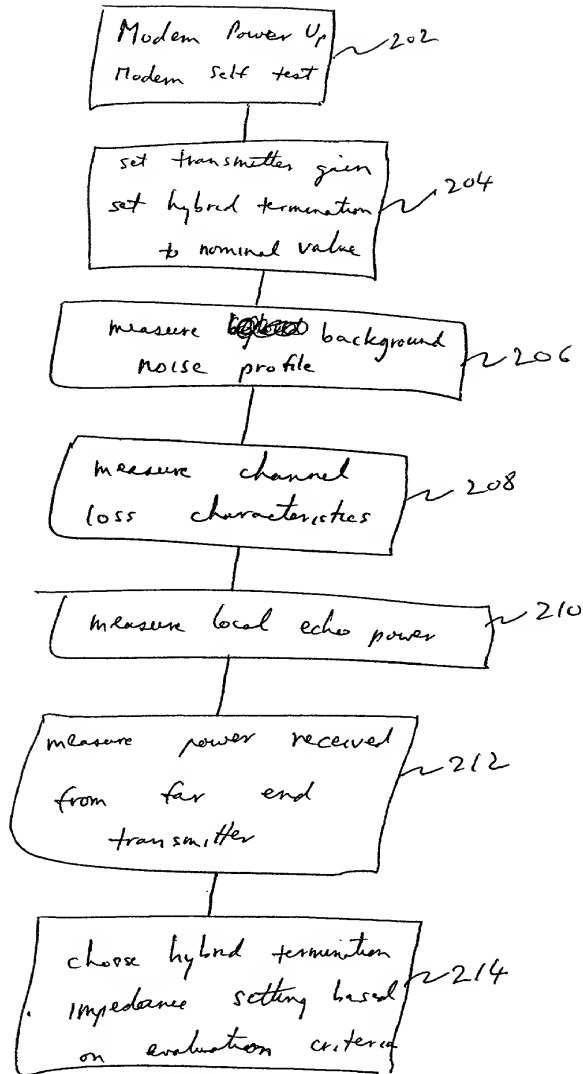 Modem Power Up
Modem self test
202
set transmitter gain
set hybrid termination
to nominal value
204
measure background
noise profile
206
measure channel
loss characteristics
208
measure local echo power
210
measure power received
from far end
transmitter
212
choose hybrid termination
impedance setting based
on evaluation criteria
214